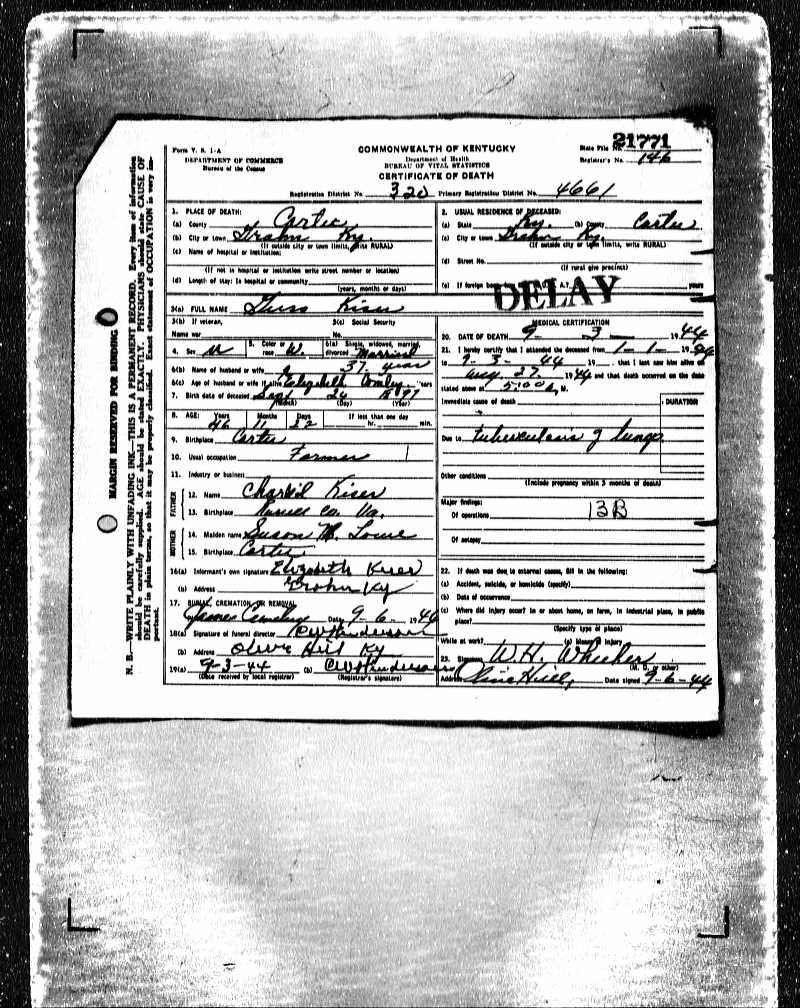 21771
Form V. S. 1-A
COMMONWEALTH OF KENTUCKY
State File No.
DEPARTMENT OF COMMERCE
Department of Health
Registrar's No. 146
Bureau of the Census
BUREAU OF VITAL STATISTICS
CERTIFICATE OF DEATH
Registration District No. 320 Primary Registration District No. 4661
MARGIN RESERVED FOR BINDING
N. B.—WRITE PLAINLY WITH UNFADING INK—THIS IS A PERMANENT RECORD. Every item of information
should be carefully supplied. AGE should be stated EXACTLY. PHYSICIANS should state CAUSE OF
DEATH in plain terms, so that it may be properly classified. Exact statement of OCCUPATION is very im-
portant.
1. PLACE OF DEATH:
(a) County Carter
(b) City or town Grahn Ky.
(If outside city or town limits, write RURAL)
(c) Name of hospital or institution:
(If not in hospital or institution write street number or location)
(d) Length of stay: In hospital or community
(years, months or days)
2. USUAL RESIDENCE OF DECEASED:
(a) State Ky. (b) County Carter
(c) City or town Grahn Ky.
(If outside city or town limits, write RURAL)
(d) Street No.
(If rural give precinct)
(e) If foreign born years
DELAY
3(a) FULL NAME Kiser
3(b) If veteran,
3(c) Social Security
Name war
No.
4. Sex M
5. Color or race W.
6(a) Single, widowed, married, divorced Married
6(b) Name of husband or wife 37 years
6(c) Age of husband or wife if alive Elizabeth years
7. Birth date of deceased Sept 1897
(Month) (Day) (Year)
8. AGE: Years Months Days If less than one day
46 11 22 hr. min.
9. Birthplace Carter
10. Usual occupation Farmer
11. Industry or business
FATHER
12. Name Kiser
13. Birthplace Co. Va.
MOTHER
14. Maiden name Susan M. Lowe
15. Birthplace Carter
16(a) Informant's own signature Elizabeth Kiser
(b) Address Grahn Ky
17. BURIAL, CREMATION OR REMOVAL
James Cemetery Date 9-6- 1944
18(a) Signature of funeral director CW Henderson
(b) Address Olive Hill Ky
19(a) 9-3-44 (b) CW Henderson
(Date received by local registrar) (Registrar's signature)
MEDICAL CERTIFICATION
20. DATE OF DEATH 9- 3 1944
21. I hereby certify that I attended the deceased from 1-1- 1944
to 9-3- 44 19 that I last saw him alive on
Aug. 27. 1944 and that death occurred on the date
stated above at 5:00 a. M.
Immediate cause of death
DURATION
Due to Tuberculosis of lungs
Other conditions
(Include pregnancy within 3 months of death)
Major findings:
Of operations 13B
Of autopsy
22. If death was due to external causes, fill in the following:
(a) Accident, suicide, or homicide (specify)
(b) Date of occurrence
(c) Where did injury occur? In or about home, on farm, in industrial place, in public
place?
(Specify type of place)
While at work? (e) Means of injury
23. Signature W.H. Wheeler
(M. D. or other)
Address Olive Hill, Date signed 9-6-44